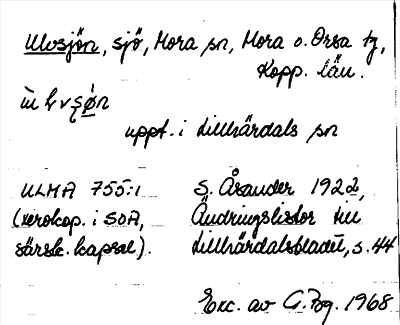 Ulvsjön, sjö, Mora sn, Mora o. Orsa tg,
Kopp. län.
uppt. i Lillhärdals sn
ULMA 755:1 S. Åsander 1922,
(xerokop. i SOA, Ändringslistor till
särsk. kapsel). Lillhärdalsbladet, s. 44
Exc. av C. Pog. 1968